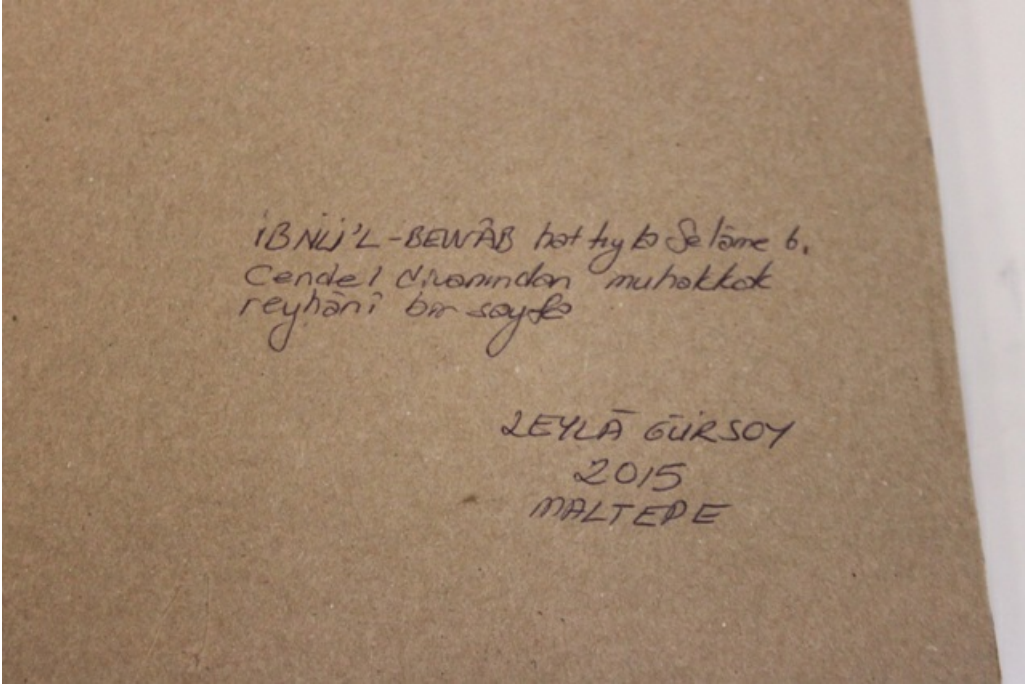 İBNÜ'L-BEVVÂB hattıyla Selâme b.
Cendel divanından muhakkak
reyhânî bir sayfa
LEYLÂ GÜRSOY
2015
MALTEPE